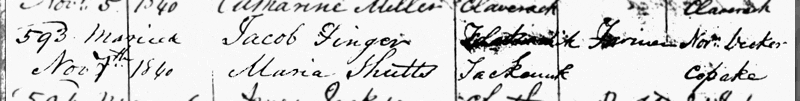 Nov. 5 1840 Catharine Miller Claverack Claverack
593 Married Jacob Finger Farmer Nor. Decker
Nov 7th 1840 Maria Shutts Tackonick Copake